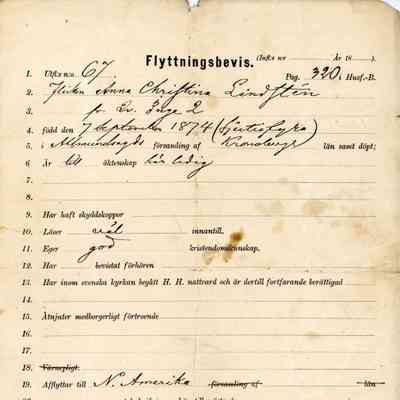 Flyttningsbevis. (Infl:s n:r År 18 ).
1. Utfl:s n:o. 67. Pag. 320. Husf.-B.
2. Flickan Anna Christina Lindstén
3. 2
4. född den 7 September 1874 (sjuttiofyra)
5. i församling af Kronobergs län samt döpt;
6 Är till äktenskap här ledig
7.
8.
9. Har haft skyddskoppor
10. Läser väl innantill,
11. Eger god kristendomskunskap,
12. Har bevistat förhören
13. Har inom svenska kyrkan begått H. H. nattvard och är dertill fortfarande berättigad
14.
15. Åtnjuter medborgerligt förtroende
16.
17.
18. Värnepligt.
19. Afflyttar till N. Amerika församling af län